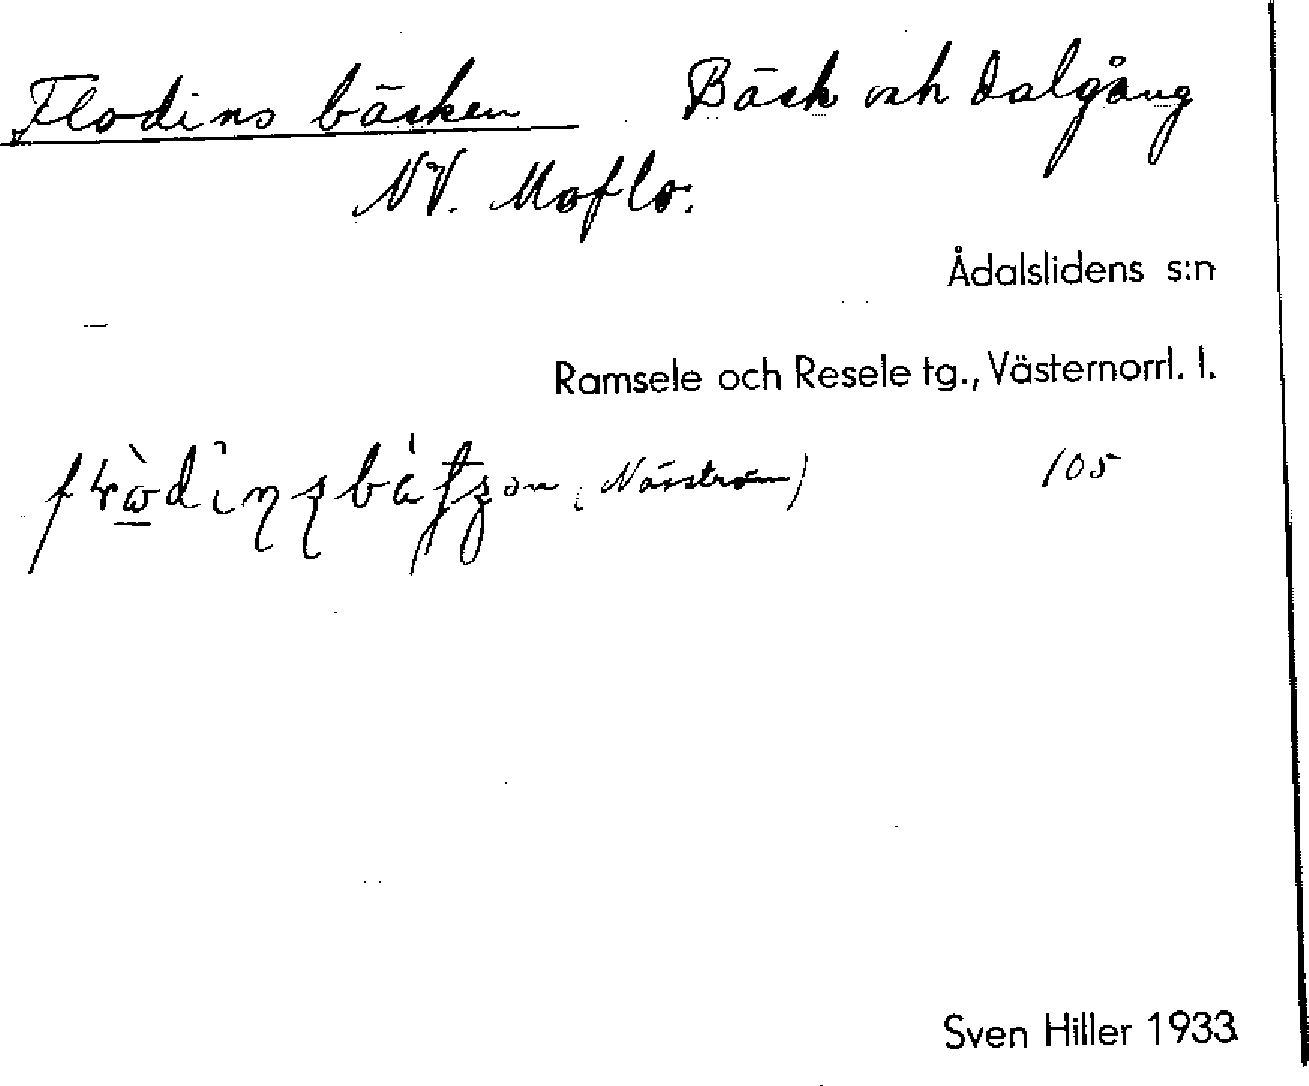 Flodins bäcken Bäck och dalgång
NV. Moflo.
Ådalslidens s:n
Ramsele och Resele tg., Västernorrl. l.
(Näsström) 105
Sven Hiller 1933